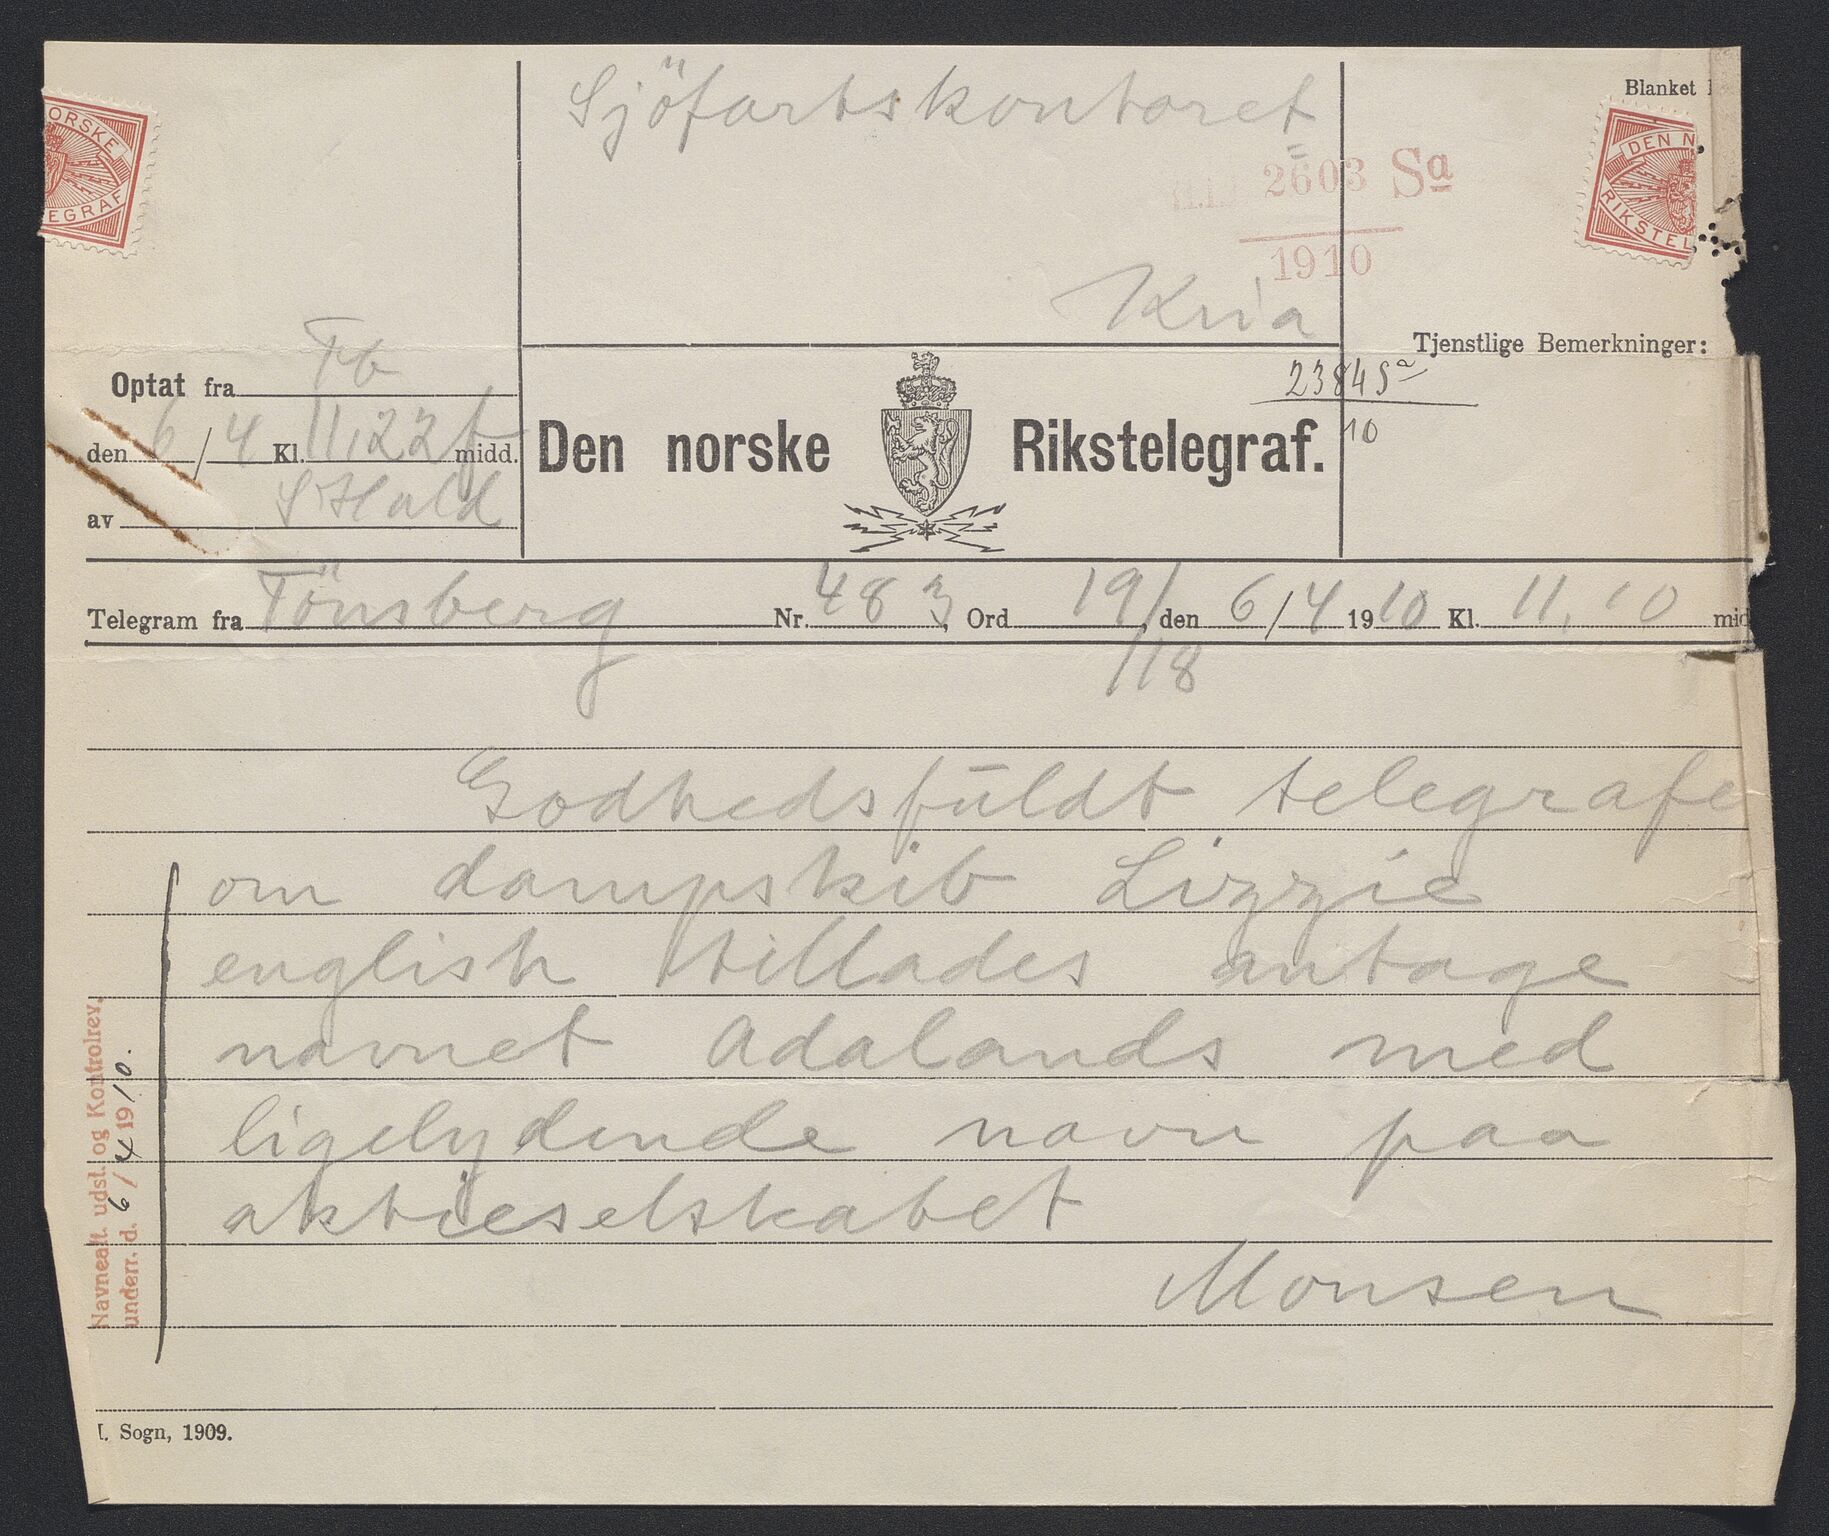 Sjöfartskontoret
Blanket
ORSKE
EGRAF
DEN N
RIKSTEL
2603 Sa
1910
Kria
Tjenstlige Bemerkninger:
Optat fra Tb
2384 Sa
10
den 6/4 Kl. 11,22 f midd.
Den norske Rikstelegraf.
av S Hald
Telegram fra Tönsberg Nr. 483, Ord 19/ den 6/4 1910 Kl. 11,10 mid
/18
Godhedsfuldt telegrafe
om dampskib Lizzie
english tillades antage
navnet Adalands med
ligelydende navn paa
aktieselskabet
Monsen
Navneatt. udst. og Kontrolrev.
underr. d. 6/4 1910.
I. Sogn, 1909.